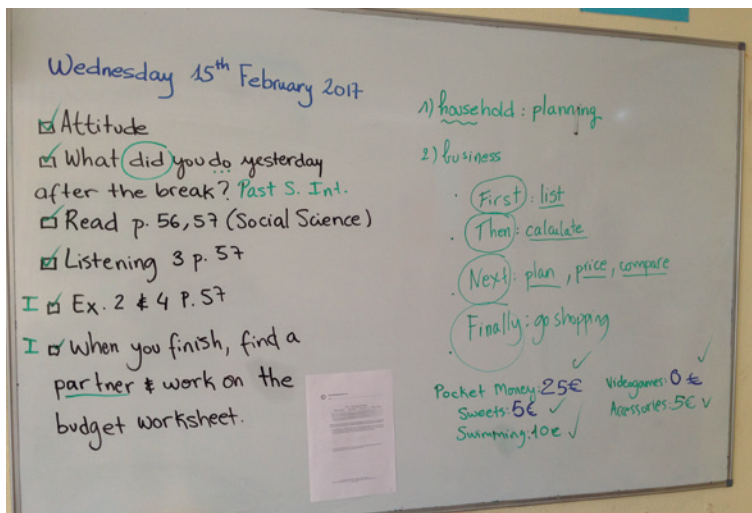 Wednesday 15th February 2017
Attitude
What did you do yesterday
after the break? Past S. Int.
Read p. 56, 57 (Social Science)
Listening 3 p. 57
I Ex. 2 & 4 P. 57
I When you finish, find a
partner & work on the
budget worksheet.
1) household : planning
2) business
· First : list
· Then : calculate
· Next : plan , price , compare
· Finally : go shopping
Pocket Money: 25€
Sweets: 5€
Swimming: 10€
Videogames: 0 €
Accessories: 5€